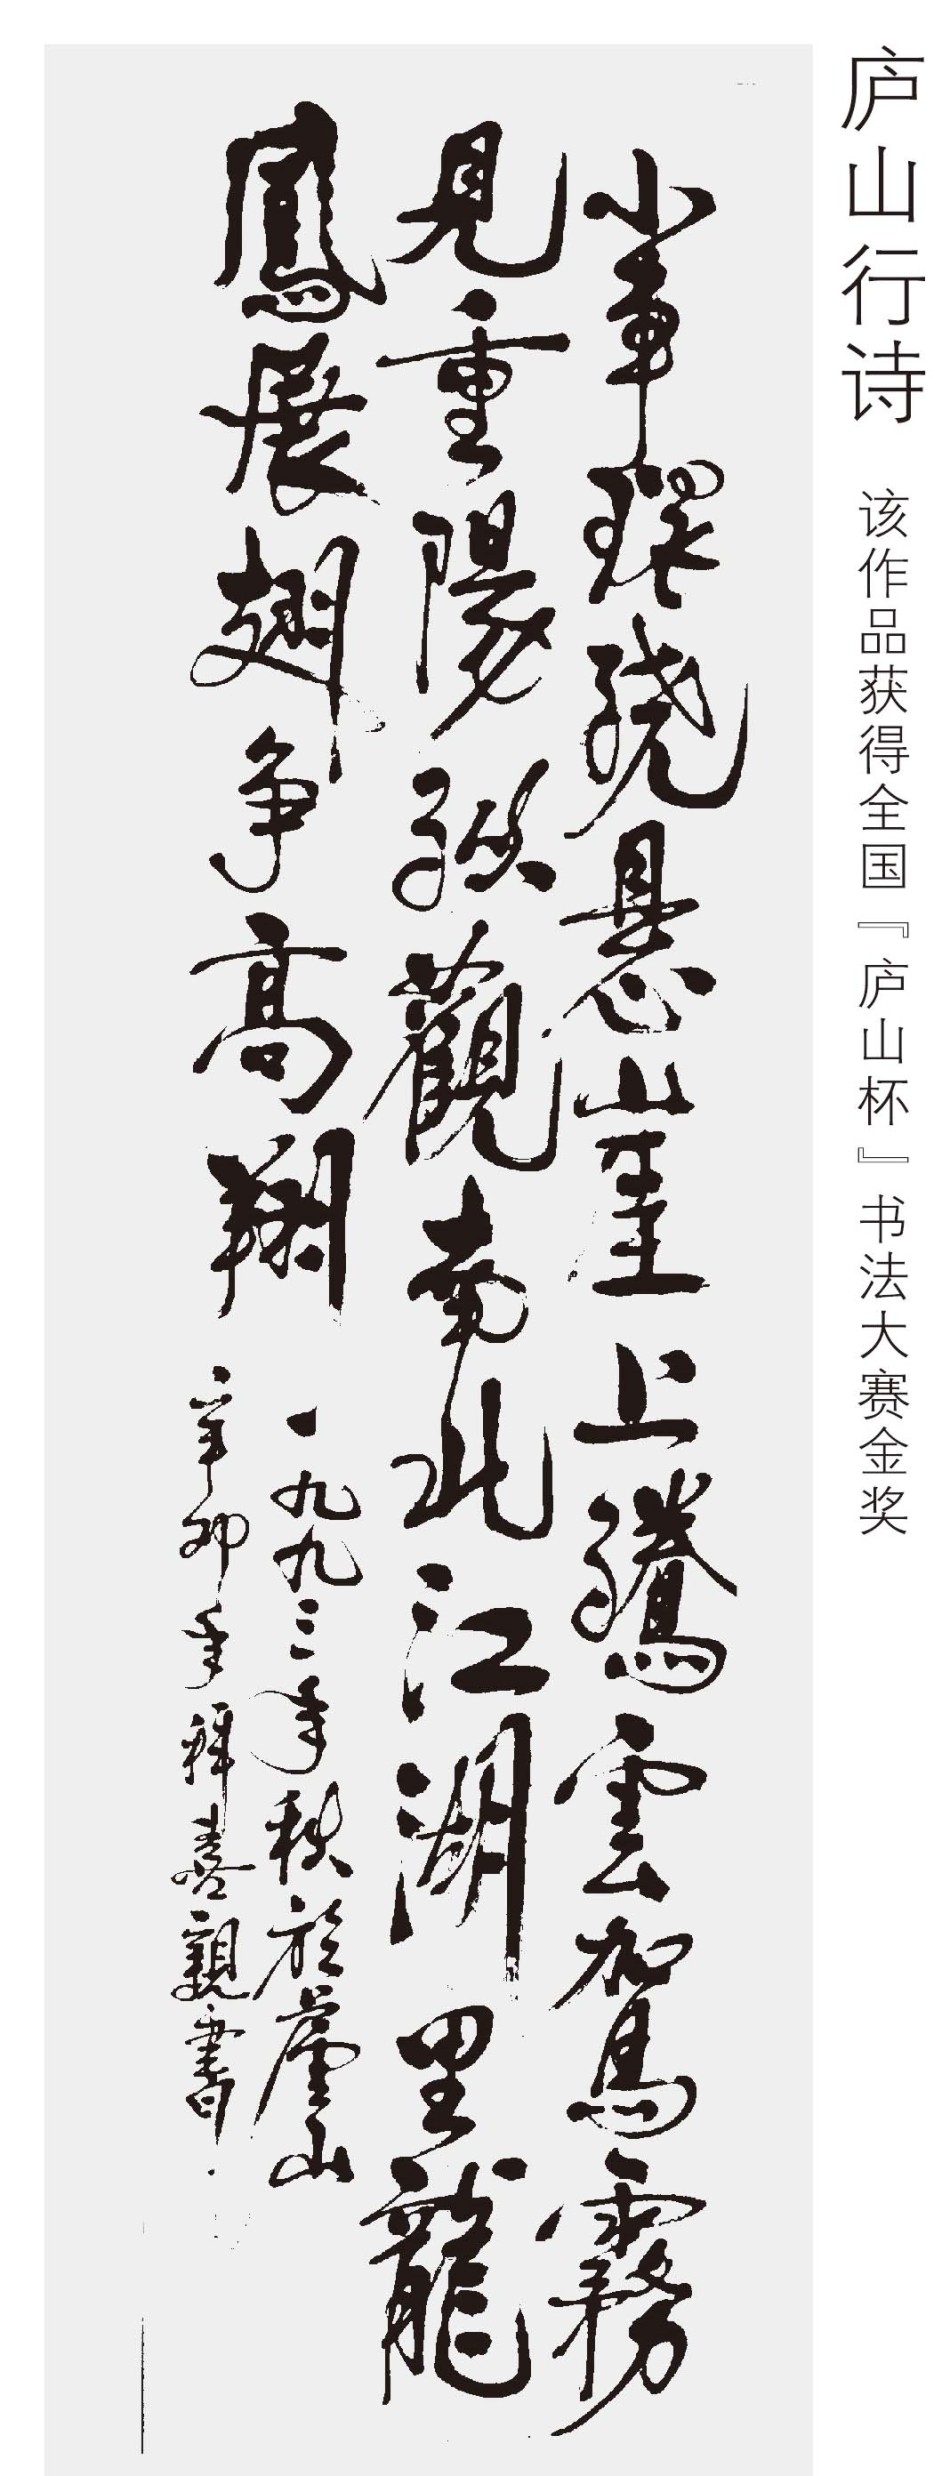 庐山行诗
该作品获得全国『庐山杯』书法大赛金奖
小车环绕悬崖上腾雲驾霧
見重陽纵觀南北江湖里龍
鳳展翅争高翔
一九九三年秋於廬山
辛卯年拜喜親書